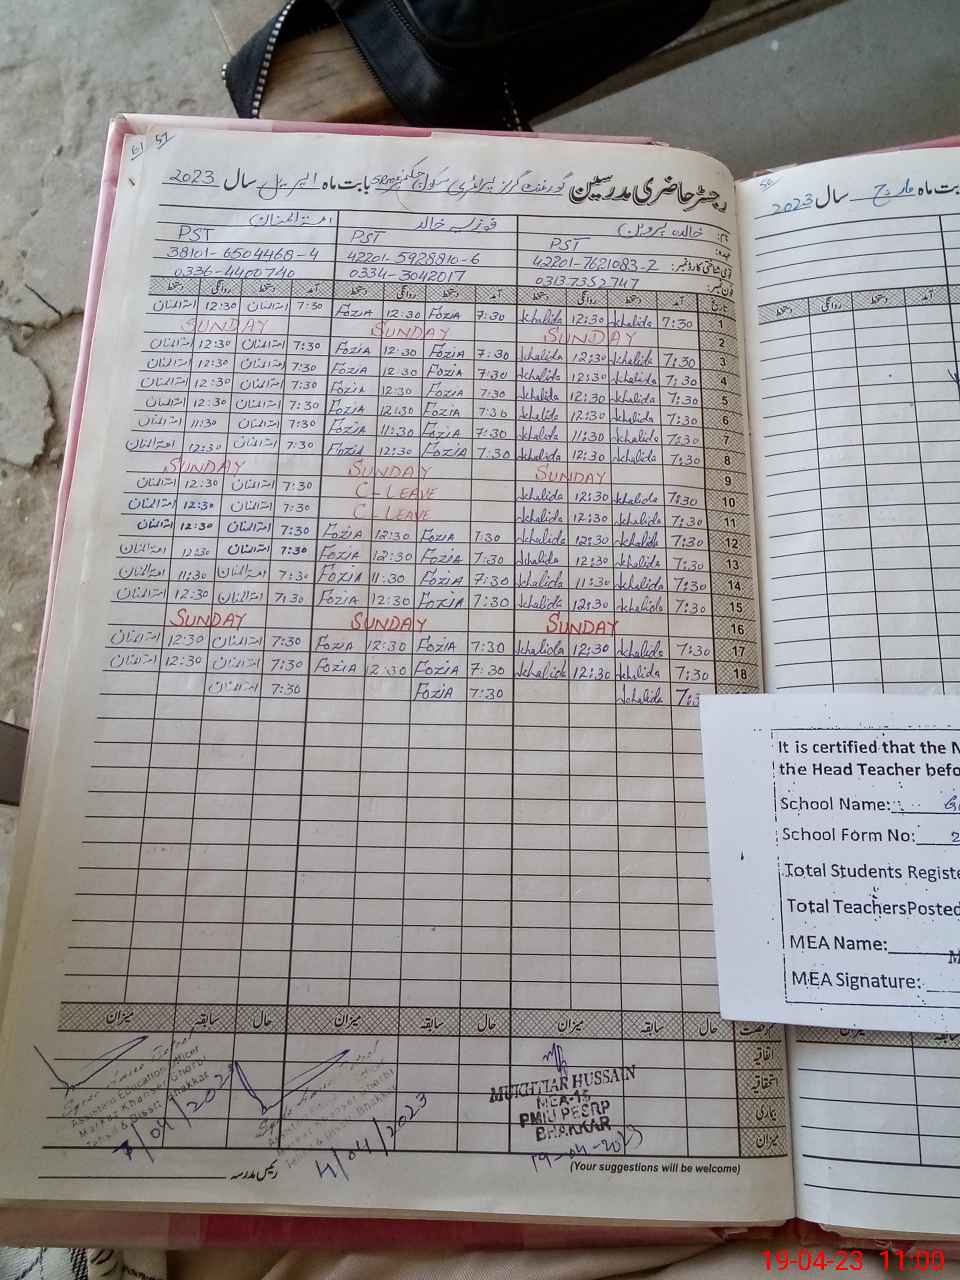 61 57
رجسٹر حاضری مدرسین گورنمنٹ گرلز پرائمری سکول بابت ماہ اپریل سال 2023
نام: خالدہ پروین فوزیہ خالد امۃ المنان
عہدہ: PST PST PST
قومی شناختی کارڈ نمبر: 42201-7621083-2 42201-5928810-6 38101-6504468-4
فون نمبر: 03137352747 0334-3042017 0336-4400740
تاریخ آمد دستخط روانگی دستخط آمد دستخط روانگی دستخط آمد دستخط روانگی دستخط
1 7:30 Khalida 12:30 Khalida 7:30 Fozia 12:30 Fozia 7:30 امۃ المنان 12:30 امۃ المنان
2 SUNDAY SUNDAY SUNDAY
3 7:30 Khalida 12:30 Khalida 7:30 Fozia 12:30 Fozia 7:30 امۃ المنان 12:30 امۃ المنان
4 7:30 Khalida 12:30 Khalida 7:30 Fozia 12:30 Fozia 7:30 امۃ المنان 12:30 امۃ المنان
5 7:30 Khalida 12:30 Khalida 7:30 Fozia 12:30 Fozia 7:30 امۃ المنان 12:30 امۃ المنان
6 7:30 Khalida 12:30 Khalida 7:30 Fozia 12:30 Fozia 7:30 امۃ المنان 12:30 امۃ المنان
7 7:30 Khalida 11:30 Khalida 7:30 Fozia 11:30 Fozia 7:30 امۃ المنان 11:30 امۃ المنان
8 7:30 Khalida 12:30 Khalida 7:30 Fozia 12:30 Fozia 7:30 امۃ المنان 12:30 امۃ المنان
9 SUNDAY SUNDAY SUNDAY
10 7:30 Khalida 12:30 Khalida C-LEAVE 7:30 امۃ المنان 12:30 امۃ المنان
11 7:30 Khalida 12:30 Khalida C-LEAVE 7:30 امۃ المنان 12:30 امۃ المنان
12 7:30 Khalida 12:30 Khalida 7:30 Fozia 12:30 Fozia 7:30 امۃ المنان 12:30 امۃ المنان
13 7:30 Khalida 12:30 Khalida 7:30 Fozia 12:30 Fozia 7:30 امۃ المنان 12:30 امۃ المنان
14 7:30 Khalida 11:30 Khalida 7:30 Fozia 11:30 Fozia 7:30 امۃ المنان 11:30 امۃ المنان
15 7:30 Khalida 12:30 Khalida 7:30 Fozia 12:30 Fozia 7:30 امۃ المنان 12:30 امۃ المنان
16 SUNDAY SUNDAY SUNDAY
17 7:30 Khalida 12:30 Khalida 7:30 Fozia 12:30 Fozia 7:30 امۃ المنان 12:30 امۃ المنان
18 7:30 Khalida 12:30 Khalida 7:30 Fozia 12:30 Fozia 7:30 امۃ المنان 12:30 امۃ المنان
7:3 Khalida 7:30 Fozia 7:30 امۃ المنان
حال سابقہ میزان حال سابقہ میزان حال سابقہ میزان
اتفاقیہ
استحقاقیہ
بیماری
میزان
MUKHTIAR HUSSAIN
MEA-15
PMIU PESRP
BHAKKAR
19-04-2023
Assistant Education Officer
Markaz Khanser Gharbi
Tehsil & Distt Bhakkar
4/04/2023
7/04/2023
رئیس مدرسہ
(Your suggestions will be welcome)
بابت ماہ مارچ سال 2023
آمد دستخط روانگی دستخط
It is certified that the N
the Head Teacher befo
School Name:
School Form No: 2
Total Students Registe
Total TeachersPosted
MEA Name: M
MEA Signature:
19-04-23 11:00